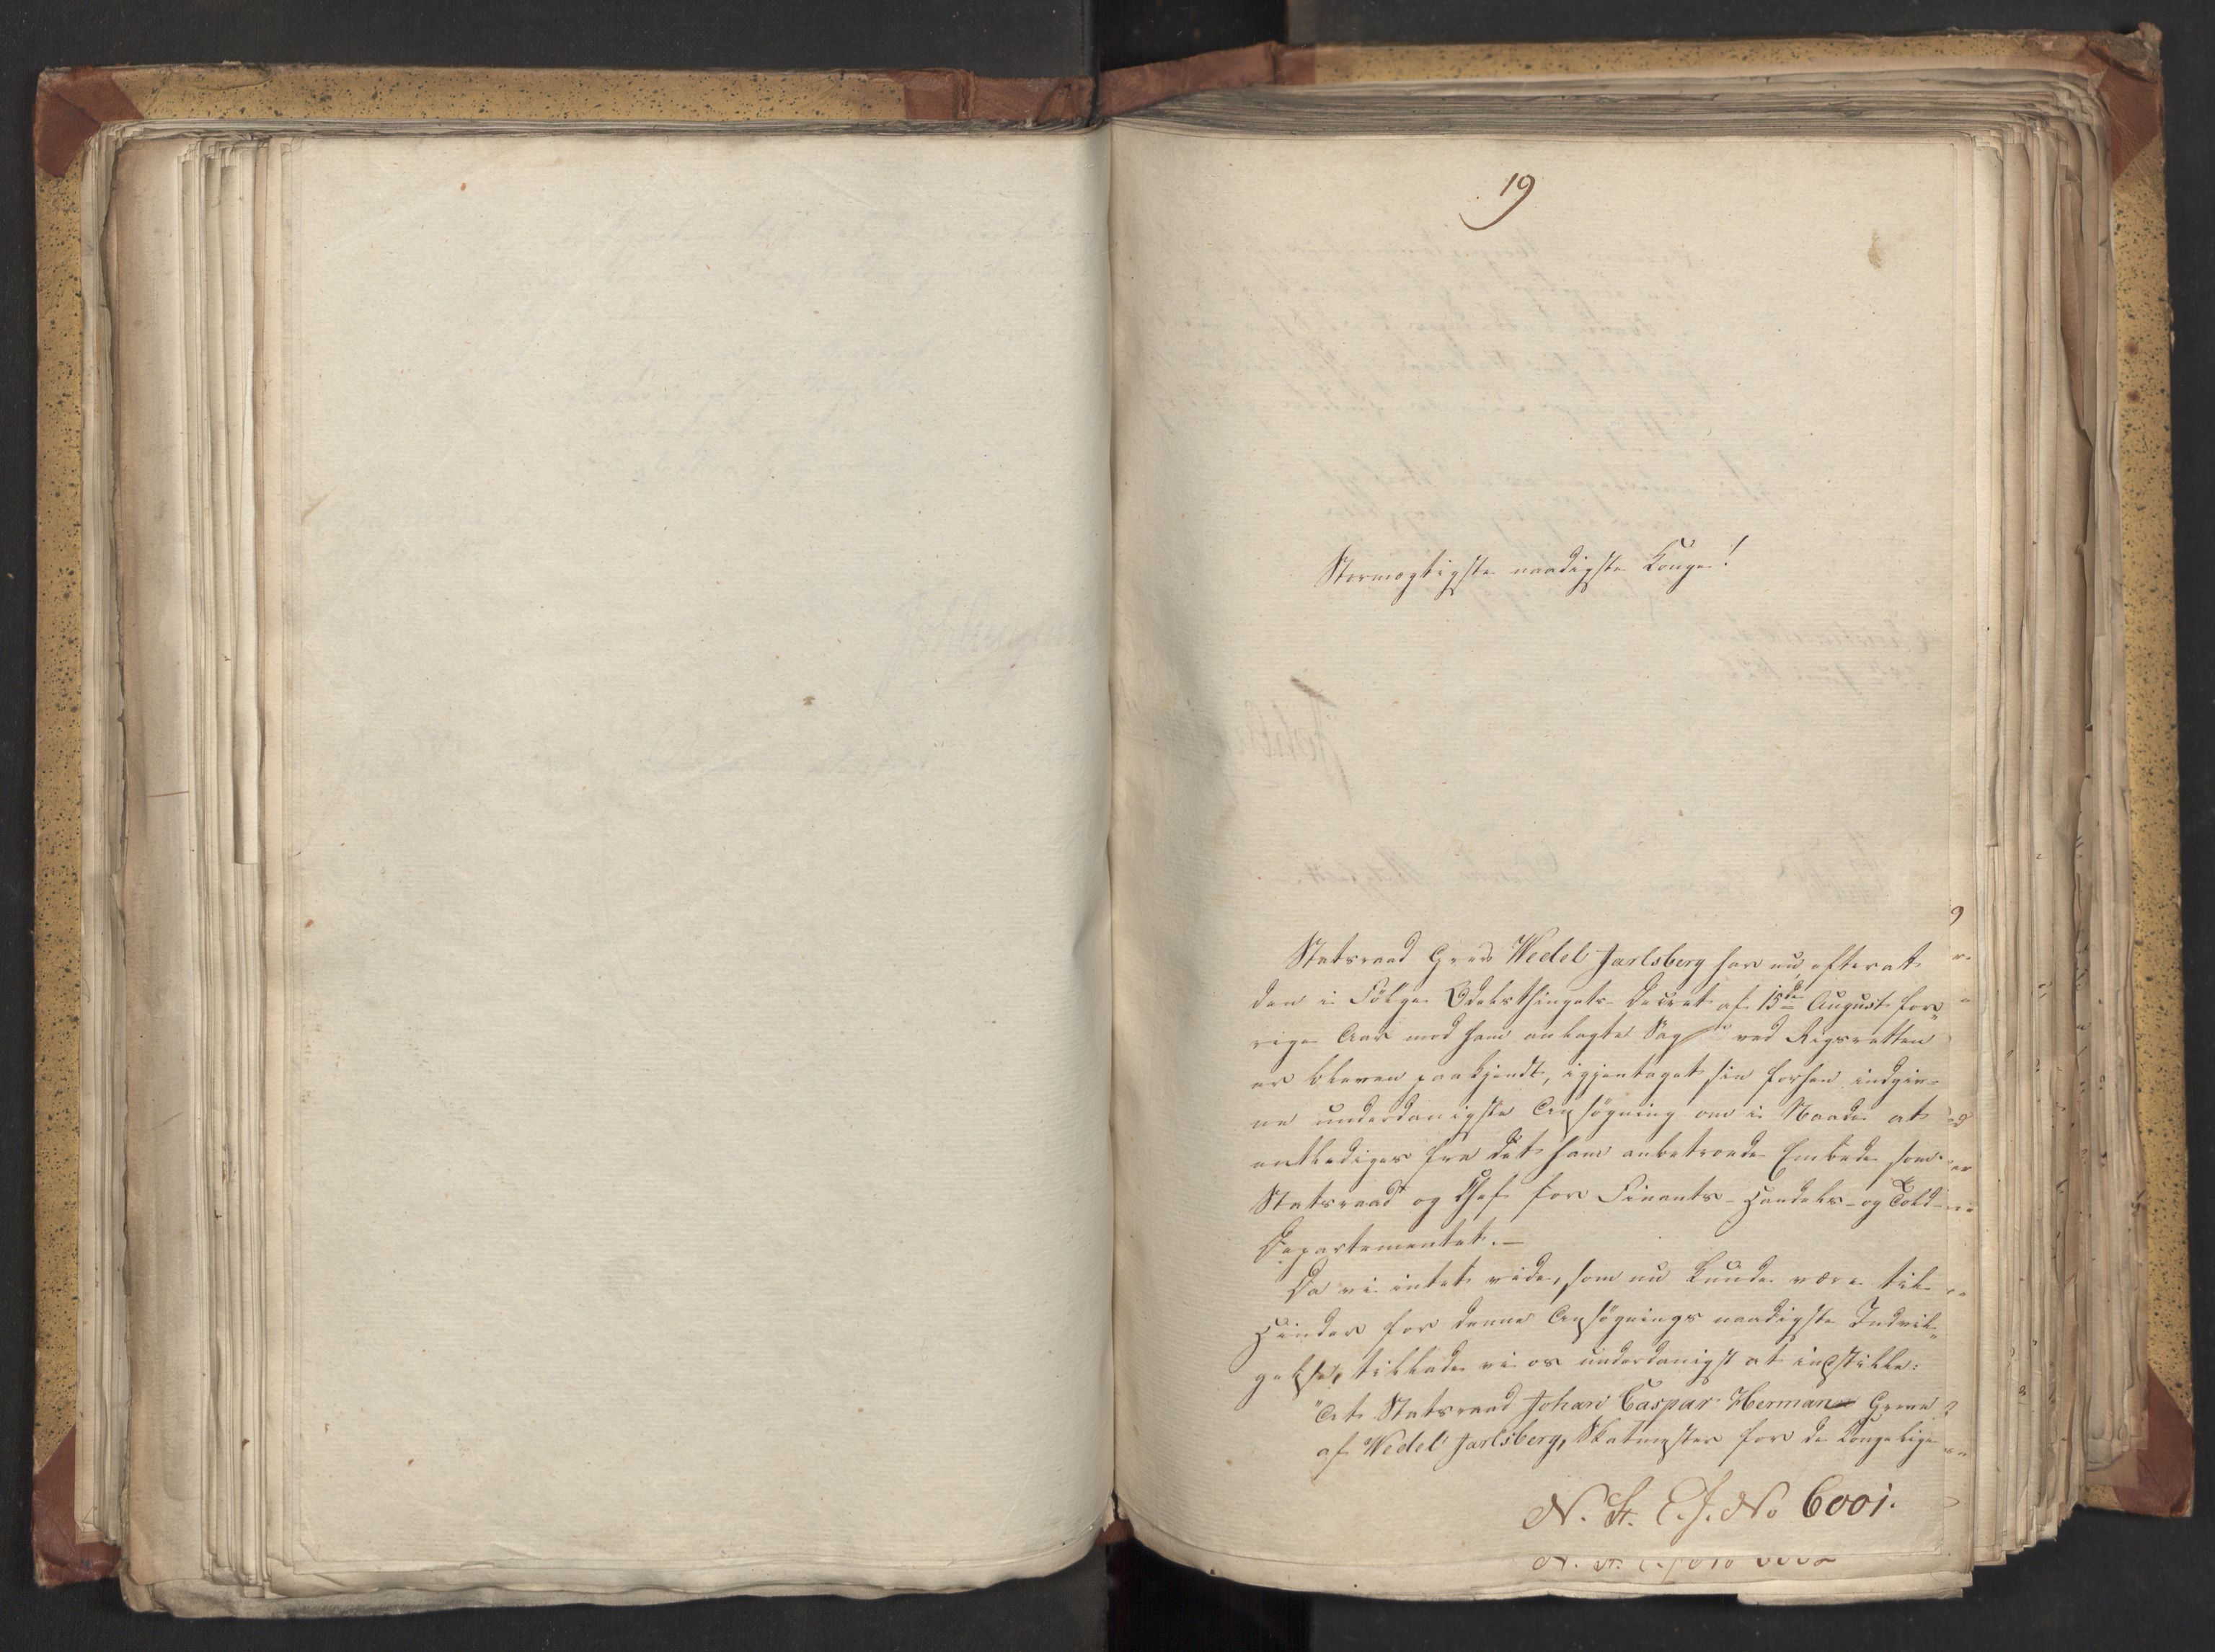 19
Stormægtigste naadigste Konge!
Statsraad Greve Wedel Jarlsberg har nu efterat
den i Følge Odelsthingets Decret af 15de August for„
rige Aar mod ham anlagte Sag ved Rigsretten
er bleven paakjendt, igjentaget sin forhen indgiv-
ne underdanigste Ansøgning om i Naade at
entlediges fra det ham anbetroede Embede som
Statsraad og Chef for Finants- Handels- og Told-
Departementet.—
Da vi intet vide, som nu kunde være til
Hinder for denne Ansøgnings naadigste Indvil„
gelse, tillade vi os underdanigst at indstille:
"At Statsraad Johan Caspar Herman Greve
af Wedel Jarlsberg, Skatmester for de Kongelige
N. St. E. J. No 6001.